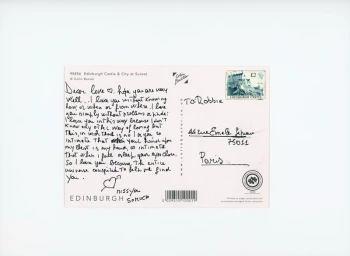 Edinburgh Castle & City at Sunset
Dear love ♡, hope you are very
well... I love you without knowing
how or when or from where I love
you simply without problems or pride:
I love you in this way because I don't
know any other way of loving but
this, in which there is no I or you so
intimate that your hand upon
my chest is my hand, so intimate
that when I fall asleep your eyes close.
So I love you because the entire
universe conspired to help me find
you.
miss you
So much
EDINBURGH
£2
EDINBURGH CASTLE
TO: Robbie
75011
Paris